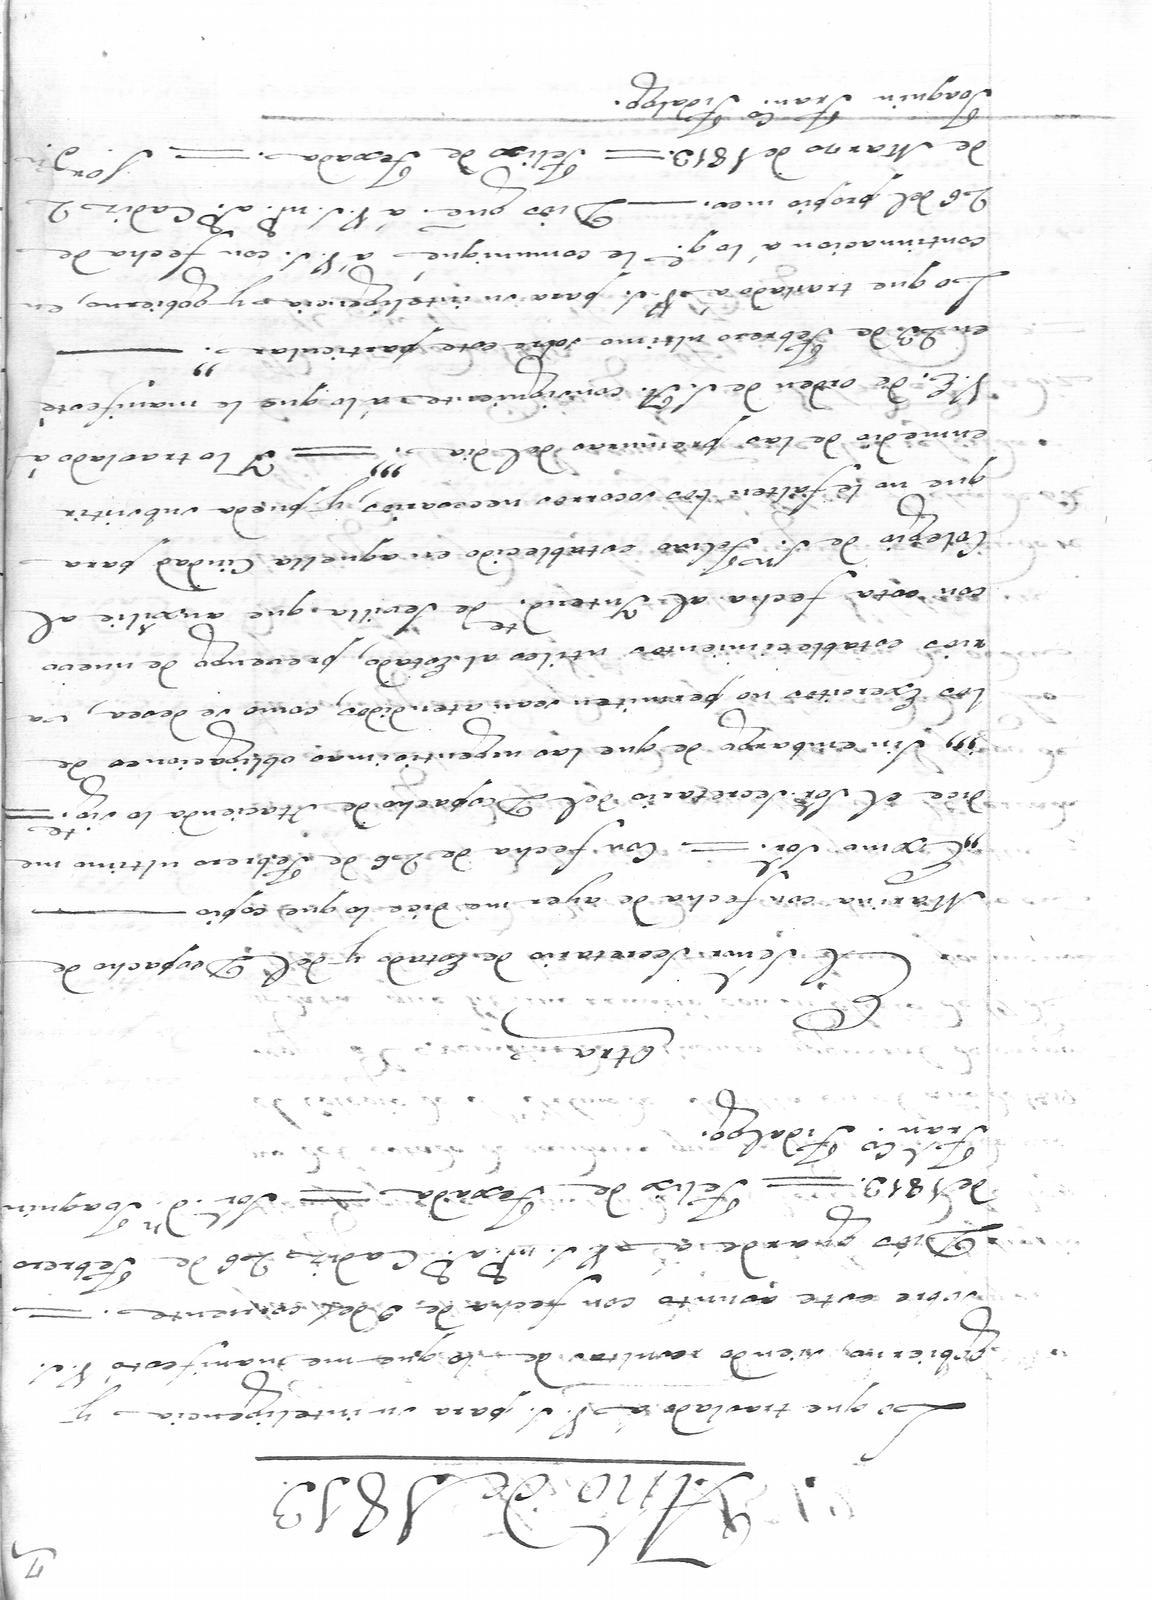 Año de 1813.
Lo que traslado a V. S. para su inteligencia y
gobierno, siendo resultas de lo que me manifestó V. S.
sobre este asunto con fecha de 9 del corriente. =
Dios guarde a V. S. m.s a.s Cadiz 26 de Febrero
de 1813. = Felix de Texada = Sor. D.n Joaquin
Fran.co Fidalgo.
Otra
El Señor Secretario de Estado y del Despacho de
Marina con fecha de ayer me dice lo que copio
„Exmo Sor. = Con fecha de 26 de Febrero ultimo me
dice el Sor. Secretario del Despacho de Hacienda lo sig.te =
„„ Sin embargo de que las urgentisimas obligaciones de
los Exercitos no permiten sean atendidos, como se desea, va
rios establecimientos utiles al Estado, prevengo de nuevo
con esta fecha al Intend.te de Sevilla que auxilie al
Colegio de S.n Telmo establecido en aquella Ciudad para
que no le falten los socorros necesarios, y pueda subsistir
enmedio de las premuras del dia „„. = Y lo traslado á
V. E. de orden de S. A. consiguiente á lo que le manifesté
en 23 de Febrero ultimo sobre este particular „.
Lo que traslado a V. S. para su inteligencia y gobierno, en
continuacion á lo q.e le comuniqué á V. S. con fecha de
26 del propio mes. Dios gue. á V. S. m.s a.s Cadiz 2
de Marzo de 1813. = Felix de Texada. = Sor. D.n
Joaquin Fran.co Fidalgo.